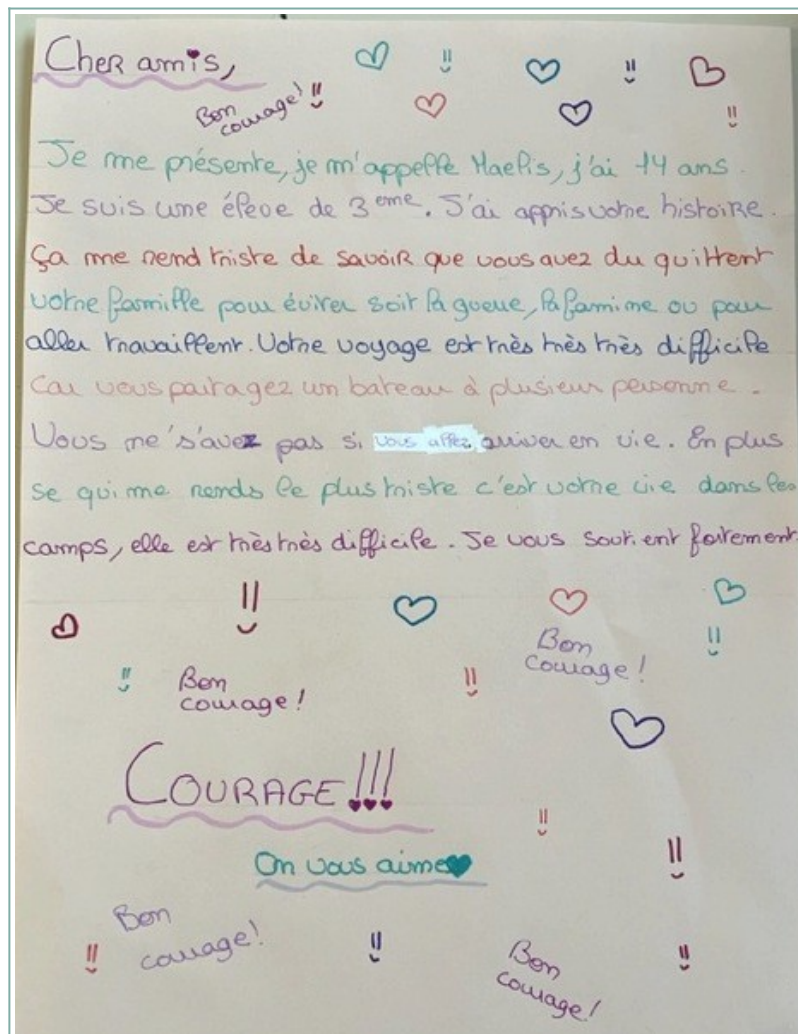 Cher amis,
Bon
courage!
Je me présente, je m'appelle Maelis, j'ai 14 ans.
Je suis une éleve de 3eme. J'ai appris votre histoire.
Ça me rend triste de savoir que vous avez du quittent
votre famille pour éviter soit la guerre, la famine ou pour
aller travaillent. Votre voyage est très très très difficile
Car vous partagez un bateau à plusieur personne.
Vous ne s'avez pas si vous allez arriver en vie. En plus
se qui me rends le plus triste c'est votre vie dans les
camps, elle est très très difficile. Je vous soutient fortement.
Bon
courage!
Bon
courage!
COURAGE!!!
On vous aime
Bon
courage!
Bon
courage!